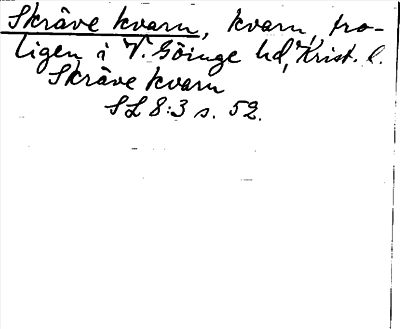 Skräve kvarn, kvarn, tro-
ligen i V. Göinge hd, Krist. l.
Skräve kvarn
SL 8:3 s. 52.